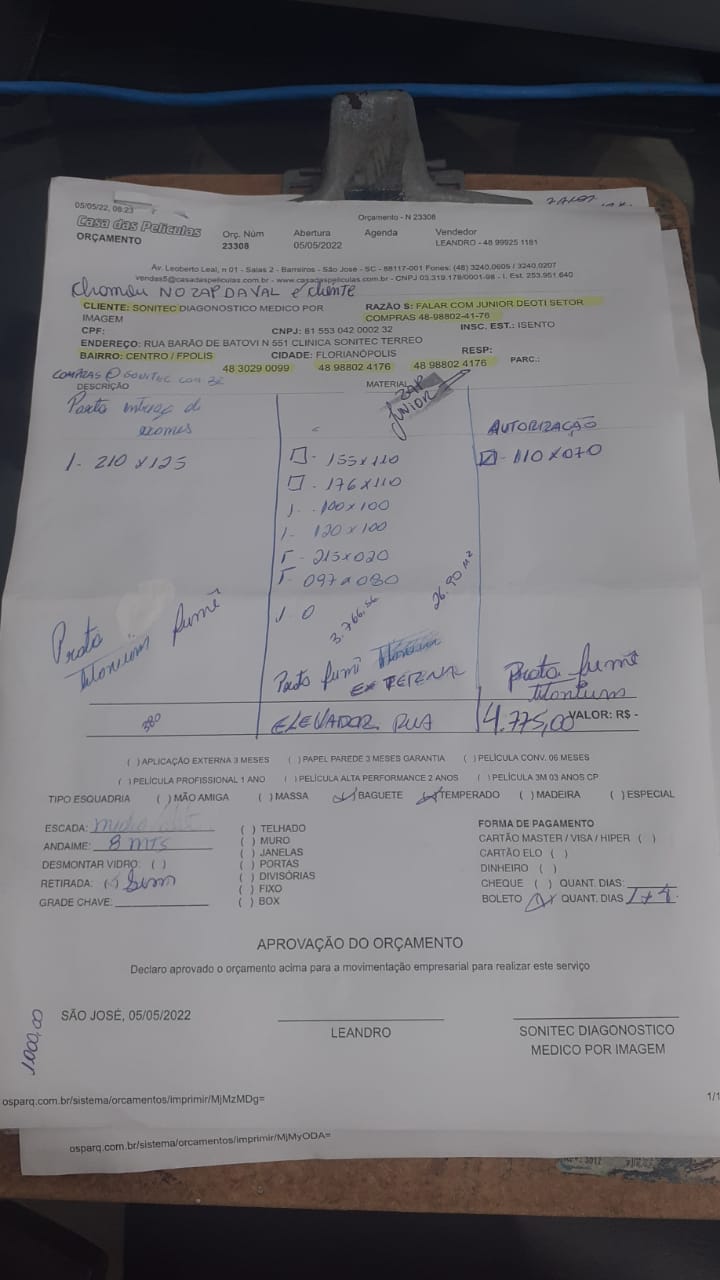 05/05/22, 08:23
Orçamento - N 23308
Casa das Películas
ORÇAMENTO
Orç. Núm
23308
Abertura
05/05/2022
Agenda
Vendedor
LEANDRO - 48 99925 1181
Av. Leoberto Leal, n 01 - Salas 2 - Barreiros - São José - SC - 88117-001 Fones: (48) 3240.0605 / 3240.0207
vendas5@casadaspeliculas.com.br - www.casadaspeliculas.com.br - CNPJ 03.319.178/0001-98 - I. Est. 253.951.640
chamou NO ZAP DA VAL é cliente
CLIENTE: SONITEC DIAGONOSTICO MEDICO POR
IMAGEM
RAZÃO S: FALAR COM JUNIOR DEOTI SETOR
COMPRAS 48-98802-41-76
CPF:
CNPJ: 81 553 042 0002 32
INSC. EST.: ISENTO
ENDEREÇO: RUA BARÃO DE BATOVI N 551 CLINICA SONITEC TERREO
BAIRRO: CENTRO / FPOLIS
CIDADE: FLORIANÓPOLIS
RESP:
48 3029 0099
48 98802 4176
48 98802 4176
PARC.:
COMPRAS @ SONITEC COM BR
DESCRIÇÃO
MATERIAL
ZAP
JUNIOR
Porta entrega de
exames
AUTORIZAÇÃO
1- 210 x 125
- 155x110
- 110x070
- 176x110
1- 100x100
1- 120x100
- 215x020
- 097 080
1 0
3.766,56
26.90 m2
Prata fumê
titanium
Prata fumê titanium
EXTERNAL
Prata fumê
titanium
ELEVADOR RUA
4.775,00
VALOR: R$ -
( ) APLICAÇÃO EXTERNA 3 MESES ( ) PAPEL PAREDE 3 MESES GARANTIA ( ) PELÍCULA CONV. 06 MESES
( ) PELÍCULA PROFISSIONAL 1 ANO ( ) PELÍCULA ALTA PERFORMANCE 2 ANOS ( ) PELÍCULA 3M 03 ANOS CP
TIPO ESQUADRIA ( ) MÃO AMIGA ( ) MASSA (✓) BAGUETE (✓) TEMPERADO ( ) MADEIRA ( ) ESPECIAL
ESCADA:
ANDAIME: 8 MTS
DESMONTAR VIDRO: ( )
RETIRADA: ( ) Sim
GRADE CHAVE:
( ) TELHADO
( ) MURO
( ) JANELAS
( ) PORTAS
( ) DIVISÓRIAS
( ) FIXO
( ) BOX
FORMA DE PAGAMENTO
CARTÃO MASTER / VISA / HIPER ( )
CARTÃO ELO ( )
DINHEIRO ( )
CHEQUE ( ) QUANT. DIAS:
BOLETO (X) QUANT. DIAS 1+1
APROVAÇÃO DO ORÇAMENTO
Declaro aprovado o orçamento acima para a movimentação empresarial para realizar este serviço
1.000,00
SÃO JOSÉ, 05/05/2022
LEANDRO
SONITEC DIAGONOSTICO
MEDICO POR IMAGEM
osparq.com.br/sistema/orcamentos/imprimir/MjMzMDg=
1/1
osparq.com.br/sistema/orcamentos/imprimir/MjMyODA=